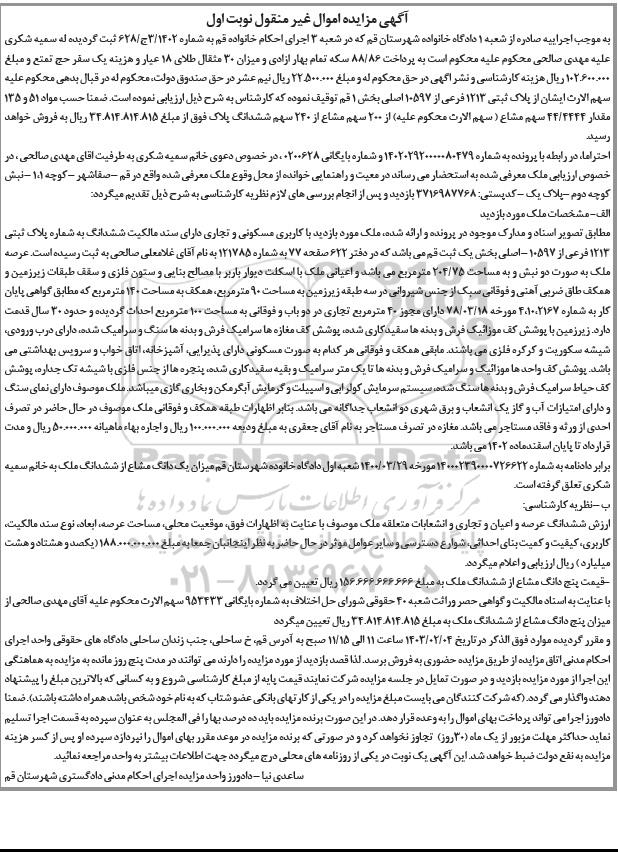 آگهی مزایده اموال غیر منقول نوبت اول
به موجب اجراییه صادره از شعبه ۱ دادگاه خانواده شهرستان قم که در شعبه ۳ اجرای احکام خانواده قم به شماره ۳/۱۴۰۲ج/۶۲۸ ثبت گردیده له سمیه شکری
علیه مهدی صالحی محکوم علیه محکوم است به پرداخت ۸۸/۸۶ سکه تمام بهار ازادی و میزان ۳۰ مثقال طلای ۱۸ عیار و هزینه یک سفر حج تمتع و مبلغ
۱۰۲.۶۰۰.۰۰۰ ریال هزینه کارشناسی و نشر اگهی در حق محکوم له و مبلغ ۲۲.۵۰۰.۰۰۰ ریال نیم عشر در حق صندوق دولت، محکوم له در قبال بدهی محکوم علیه
سهم الارث ایشان از پلاک ثبتی ۱۲۱۳ فرعی از ۱۰۵۹۷ اصلی بخش ۱ قم توقیف نموده که کارشناس به شرح ذیل ارزیابی نموده است. ضمنا حسب مواد ۵۱ و ۱۳۵
مقدار ۴۴/۴۴۴۴ سهم مشاع ( سهم الارث محکوم علیه) از ۲۰۰ سهم مشاع از ۲۴۰ سهم ششدانگ پلاک فوق از مبلغ ۳۴.۸۱۴.۸۱۴.۸۱۵ ریال به فروش خواهد
رسید.
احتراما، در رابطه با پرونده به شماره ۱۴۰۲۰۲۹۲۰۰۰۰۰۸۰۴۷۹ و شماره بایگانی ۰۲۰۰۶۲۸ ، در خصوص دعوی خانم سمیه شکری به طرفیت اقای مهدی صالحی ، در
خصوص ارزیابی ملک معرفی شده به استحضار می رساند در معیت و راهنمایی خوانده از محل وقوع ملک معرفی شده واقع در قم -صفاشهر -کوچه ۱،۱ -نبش
کوچه دوم -پلاک یک -کدپستی: ۳۷۱۶۹۸۷۷۶۸ بازدید و پس از انجام بررسی های لازم نظریه کارشناسی به شرح ذیل تقدیم میگردد:
الف-مشخصات ملک مورد بازدید
مطابق تصویر اسناد و مدارک موجود در پرونده و ارائه شده، ملک مورد بازدید با کاربری مسکونی و تجاری دارای سند مالکیت ششدانگ به شماره پلاک ثبتی
۱۲۱۳ فرعی از ۱۰۵۹۷ -اصلی بخش یک ثبت قم می باشد که در دفتر ۶۲۲ صفحه ۷۷ به شماره ۱۲۱۷۸۵ به نام آقای غلامعلی صالحی به ثبت رسیده است. عرصه
ملک به صورت دو نبش و به مساحت ۲۰۴/۷۵ مترمربع می باشد و اعیانی ملک با اسکلت دیوار باربر با مصالح بنایی و ستون فلزی و سقف طبقات زیرزمین و
همکف طاق ضربی آهنی و فوقانی سبک از جنس شیروانی در سه طبقه زیرزمین به مساحت ۹۰ مترمربع، همکف به مساحت ۱۴۰ مترمربع که مطابق گواهی پایان
کار به شماره ۴.۱۰.۲۱۶۷ مورخه ۷۸/۰۳/۱۸ دارای مجوز ۴۰ مترمربع تجاری در دو باب و فوقانی به مساحت ۱۰۰ مترمربع احداث گردیده و حدود ۳۰ سال قدمت
دارد. زیرزمین با پوشش کف موزائیک فرش و بدنه ها سفیدکاری شده، پوشش کف مغازه ها سرامیک فرش و بدنه ها سنگ و سرامیک شده، دارای درب ورودی،
شیشه سکوریت و کرکره فلزی می باشند. مابقی همکف و فوقانی هر کدام به صورت مسکونی دارای پذیرایی، آشپزخانه، اتاق خواب و سرویس بهداشتی می
باشد. پوشش کف واحد ها موزائیک و سرامیک فرش و بدنه ها تا یک متر سرامیک و بقیه سفیدکاری شده، پنجره ها از جنس فلزی با شیشه تک جداره، پوشش
کف حیاط سرامیک فرش و بدنه ها سنگ شده، سیستم سرمایش کولر ابی و اسپیلت و گرمایش آبگرمکن و بخاری گازی میباشد. ملک موصوف دارای نمای سنگ
و دارای امتیازات آب و گاز یک انشعاب و برق شهری دو انشعاب جداگانه می باشد. بنابر اظهارات طبقه همکف و فوقانی ملک موصوف در حال حاضر در تصرف
احدی از ورثه و فاقد مستاجر می باشد. مغازه در تصرف مستاجر به نام آقای جعفری به مبلغ ودیعه ۱۰۰.۰۰۰.۰۰۰ ریال و اجاره بهاء ماهیانه ۵۰.۰۰۰.۰۰۰ ریال و مدت
قرارداد تا پایان اسفندماده ۱۴۰۲ می باشد.
برابر دادنامه به شماره ۱۴۰۰۰۲۳۹۰۰۰۰۷۲۶۶۲۲ مورخه ۱۴۰۰/۰۳/۲۹ شعبه اول دادگاه خانوده شهرستان قم میزان یک دانگ مشاع از ششدانگ ملک به خانم سمیه
شکری تعلق گرفته است.
ب -نظریه کارشناسی:
ارزش ششدانگ عرصه و اعیان و تجاری و انشعابات متعلقه ملک موصوف با عنایت به اظهارات فوق، موقعیت محلی، مساحت عرصه، ابعاد، نوع سند مالکیت،
کاربری، کیفیت و کمیت بنای احداثی، شوارع دسترسی و سایر عوامل موثر در حال حاضر به نظر اینجانبان جمعا به مبلغ ۱۸۸.۰۰۰.۰۰۰.۰۰۰ (یکصد و هشتاد و هشت
میلیارد) ریال ارزیابی و اعلام میگردد.
-قیمت پنج دانگ مشاع از ششدانگ ملک به مبلغ ۱۵۶.۶۶۶.۶۶۶.۶۶۶ ریال تعیین می گردد.
با عنایت به اسناد مالکیت و گواهی حصر وراثت شعبه ۴۰ حقوقی شورای حل اختلاف به شماره بایگانی ۹۵۳۴۳۳ سهم الارث محکوم علیه آقای مهدی صالحی از
میزان پنج دانگ مشاع از ششدانگ ملک به مبلغ ۳۴.۸۱۴.۸۱۴.۸۱۵ ریال تعیین میگردد
و مقرر گردیده موارد فوق الذکر در تاریخ ۱۴۰۳/۰۲/۰۴ ساعت ۱۱ الی ۱۱/۱۵ صبح به آدرس قم، خ ساحلی، جنب زندان ساحلی دادگاه های حقوقی واحد اجرای
احکام مدنی اتاق مزایده از طریق مزایده حضوری به فروش برسد. لذا قصد بازدید از مورد مزایده را دارند می توانند در مدت پنج روز مانده به مزایده به هماهنگی
این اجرا از مورد مزایده بازدید و در صورت تمایل در جلسه مزایده شرکت نمایند قیمت پایه از مبلغ کارشناسی شروع و به کسانی که بالاترین مبلغ را پیشنهاد
دهند واگذار می گردد. (که شرکت کنندگان می بایست مبلغ مزایده را در یکی از کارتهای بانکی عضو شتاب که به نام خود شخص باشد همراه داشته باشند). ضمنا
دادورز اجرا می تواند پرداخت بهای اموال را به وعده قرار دهد. در این صورت برنده مزایده باید ده درصد بها را فی المجلس به عنوان سپرده به قسمت اجرا تسلیم
نماید حداکثر مهلت مزبور از یک ماه (۳۰روز) تجاوز نخواهد کرد و در صورتی که برنده مزایده در موعد مقرر بهای اموال را نپردازد سپرده او پس از کسر هزینه
مزایده به نفع دولت ضبط خواهد شد. این آگهی یک نوبت در یکی از روزنامه های محلی درج میگردد جهت اطلاعات بیشتر به واحد مراجعه نمائید.
ساعدی نیا - دادورز واحد مزایده اجرای احکام مدنی دادگستری شهرستان قم
ParsNamadData
مرکز فرآوری اطلاعات پارس نماد داده ها
۰۲۱-۸۸۳۴۹۶۷۰-۵